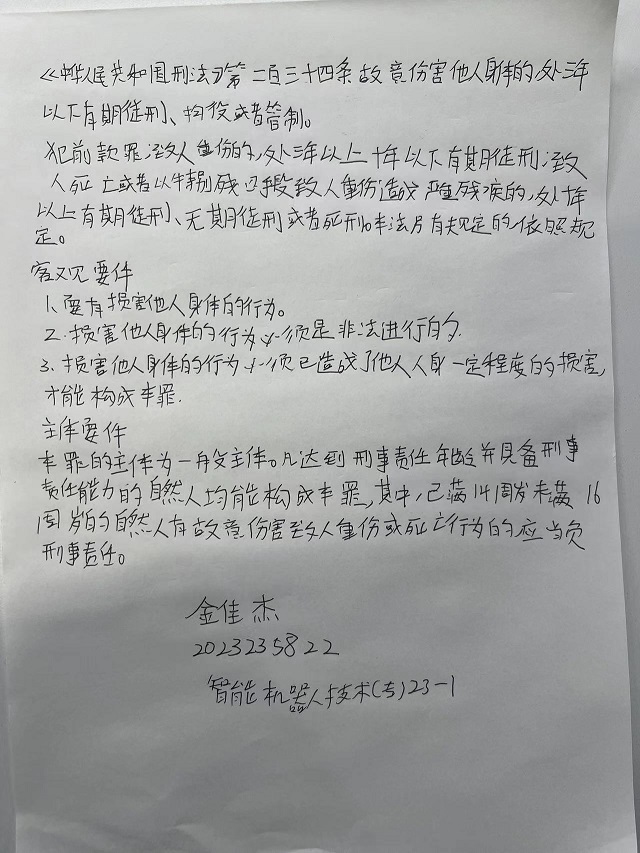 《中华人民共和国刑法》第二百三十四条故意伤害他人身体的,处三年
以下有期徒刑、拘役或者管制。
犯前款罪,致人重伤的,处三年以上十年以下有期徒刑;致
人死亡或者以特别残忍手段致人重伤造成严重残疾的,处十年
以上有期徒刑、无期徒刑或者死刑。本法另有规定的,依照规
定。
客观要件
1.要有损害他人身体的行为。
2.损害他人身体的行为必须是非法进行的.
3.损害他人身体的行为必须已造成了他人人身一定程度的损害,
才能构成本罪.
主体要件
本罪的主体为一般主体。凡达到刑事责任年龄并具备刑事
责任能力的自然人均能构成本罪,其中,已满14周岁未满16
周岁的自然人有故意伤害致人重伤或死亡行为的,应当负
刑事责任。
金佳杰
2023235822
智能机器人技术(专)23-1